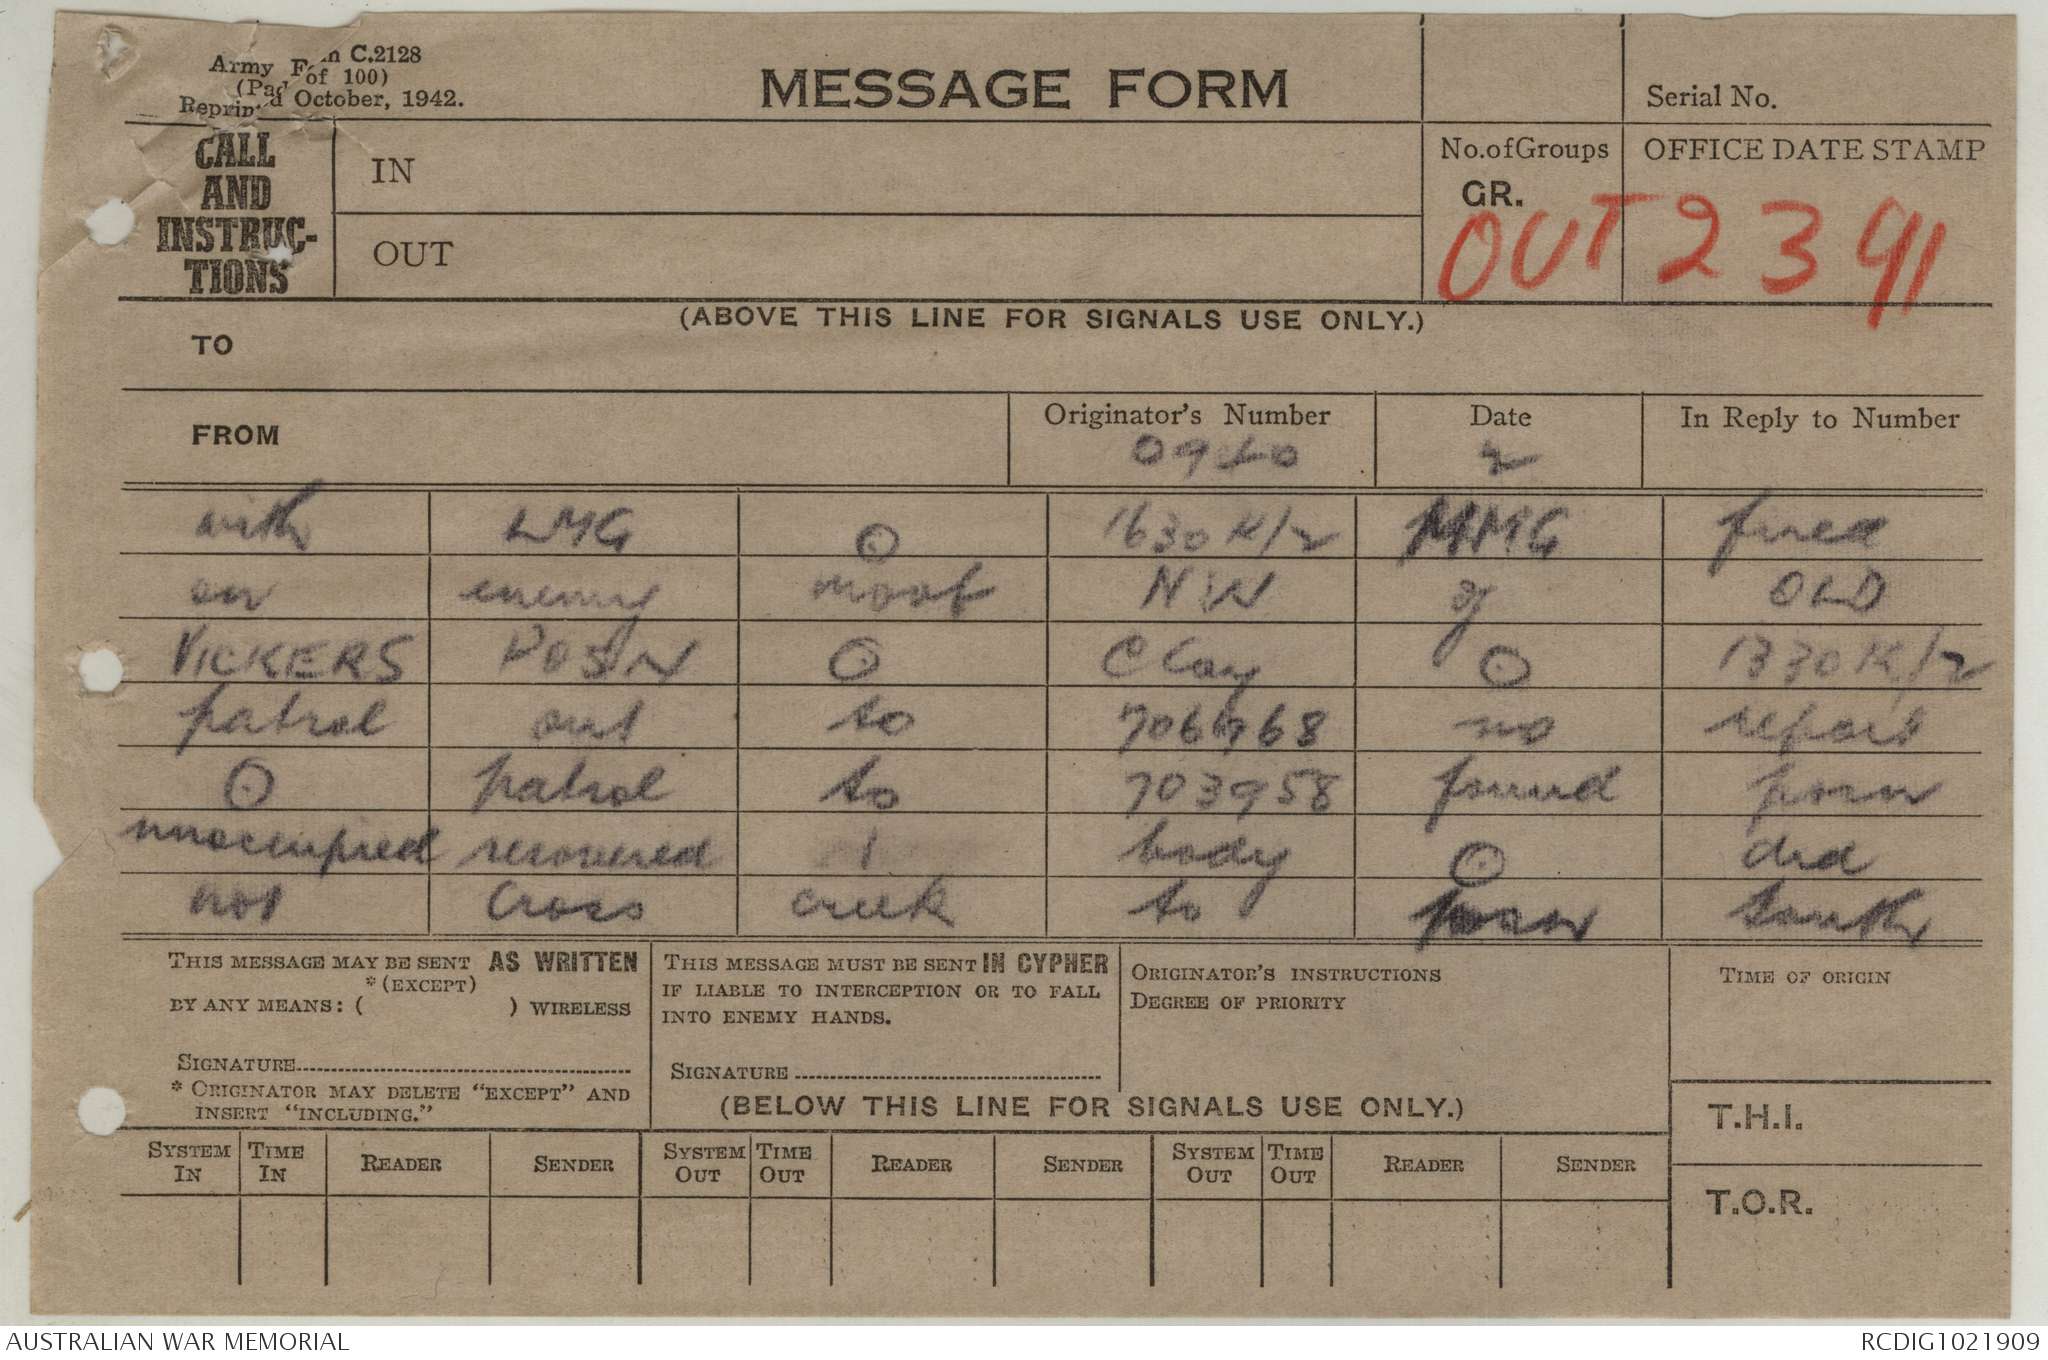 Army Form C.2128
(Pad of 100)
Reprinted October, 1942.
MESSAGE FORM
Serial No.
CALL AND INSTRUC-TIONS
IN
OUT
No.ofGroups
GR.
OFFICE DATE STAMP
OUT 2391
(ABOVE THIS LINE FOR SIGNALS USE ONLY.)
TO
FROM
Originator's Number
Date
In Reply to Number
2
with LMG ⊙ 1630K/2 MMG fired
on enemy NW of OLD
VICKERS POSN ⊙ C Coy ⊙ 1330K/2
patrol out to 706968 no report
⊙ patrol to 703958 found posn
unoccupied recovered 1 body ⊙ did
not cross creek to posn south
THIS MESSAGE MAY BE SENT AS WRITTEN
*(EXCEPT)
BY ANY MEANS: ( ) WIRELESS
SIGNATURE
* ORIGINATOR MAY DELETE "EXCEPT" AND
INSERT "INCLUDING."
THIS MESSAGE MUST BE SENT IN CYPHER
IF LIABLE TO INTERCEPTION OR TO FALL
INTO ENEMY HANDS.
SIGNATURE
ORIGINATOR'S INSTRUCTIONS
DEGREE OF PRIORITY
TIME OF ORIGIN
(BELOW THIS LINE FOR SIGNALS USE ONLY.)
T.H.I.
SYSTEM IN TIME IN READER SENDER SYSTEM OUT TIME OUT READER SENDER SYSTEM OUT TIME OUT READER SENDER
T.O.R.
AUSTRALIAN WAR MEMORIAL
RCDIG1021909